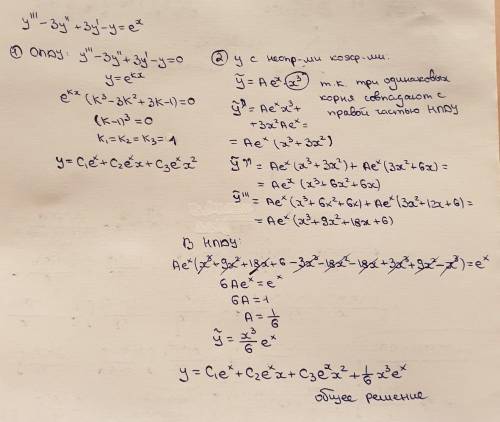 y''' - 3y'' + 3y' - y = eˣ
① ОЛДУ: y''' - 3y'' + 3y' - y = 0
y = eᵏˣ
eᵏˣ (k³ - 3k² + 3k - 1) = 0
(k-1)³ = 0
k₁ = k₂ = k₃ = 1
y = C₁eˣ + C₂eˣx + C₃eˣx²
② y с неопр-ми коэф-ми.
ỹ = Aeˣ · x³ т.к. три одинаковых
корня совпадают с
правой частью НЛДУ
ỹ' = Aeˣx³ +
+ 3x²Aeˣ =
= Aeˣ (x³ + 3x²)
ỹ'' = Aeˣ (x³ + 3x²) + Aeˣ (3x² + 6x) =
= Aeˣ (x³ + 6x² + 6x)
ỹ''' = Aeˣ (x³ + 6x² + 6x) + Aeˣ (3x² + 12x + 6) =
= Aeˣ (x³ + 9x² + 18x + 6)
В НЛДУ:
Aeˣ (x³ + 9x² + 18x + 6 - 3x³ - 18x² - 18x + 3x³ + 9x² - x³) = eˣ
6Aeˣ = eˣ
6A = 1
A = 1/6
ỹ = x³/6 eˣ
y = C₁eˣ + C₂eˣx + C₃eˣx² + 1/6 x³eˣ
общее решение